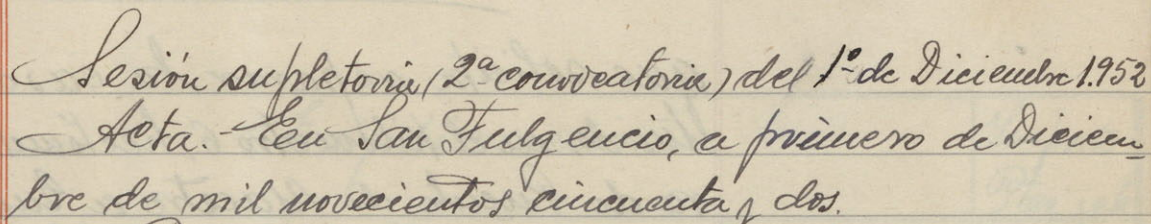 Sesión supletoria (2ª convocatoria) del 1º de Diciembre 1.952
Acta.- En San Fulgencio, a primero de Diciem-
bre de mil novecientos cincuenta y dos.